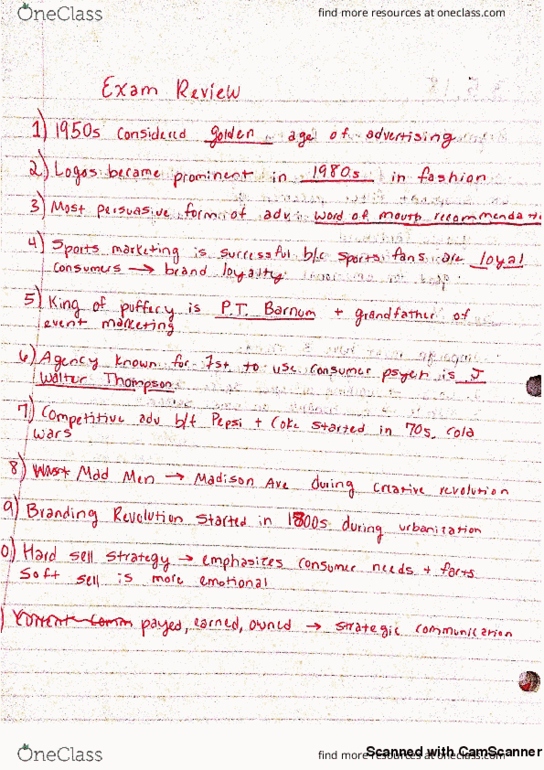 OneClass
find more resources at oneclass.com
Exam Review
1) 1950s considered golden age of advertising
2) Logos became prominent in 1980s in fashion
3) Most persuasive form of adv: word of mouth recommendati
4) Sports marketing is successful b/c sports fans are loyal
consumers → brand loyalty
5) King of puffery is P.T. Barnum + grandfather of
event marketing
6) Agency known for 1st to use consumer psych is J
Walter Thompson
7) Competitive adv b/t Pepsi + Coke started in 70s, cola
wars
8) Mad Men → Madison Ave during creative revolution
9) Branding Revolution started in 1800s during urbanization
0) Hard sell strategy → emphasizes consumer needs + facts
Soft sell is more emotional
) payed, earned, owned → strategic communication
OneClass
find more resources at oneclass.com
Scanned with CamScanner